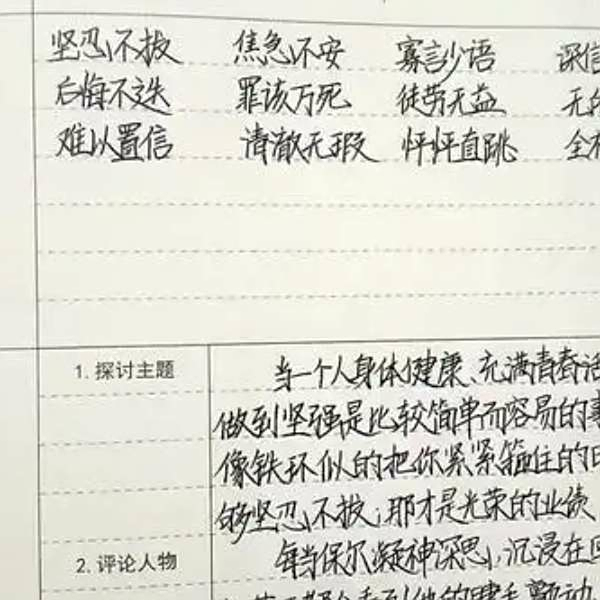 坚忍不拔 焦急不安 寡言少语 深信
后悔不迭 罪该万死 徒劳无益 无
难以置信 清澈无瑕 怦怦直跳 全
1. 探讨主题
当一个人身体健康、充满青春活
做到坚强是比较简单而容易的事
像铁环似的把你紧紧箍住的时
够坚忍不拔,那才是光荣的业绩
2. 评论人物
每当保尔凝神深思,沉浸在回